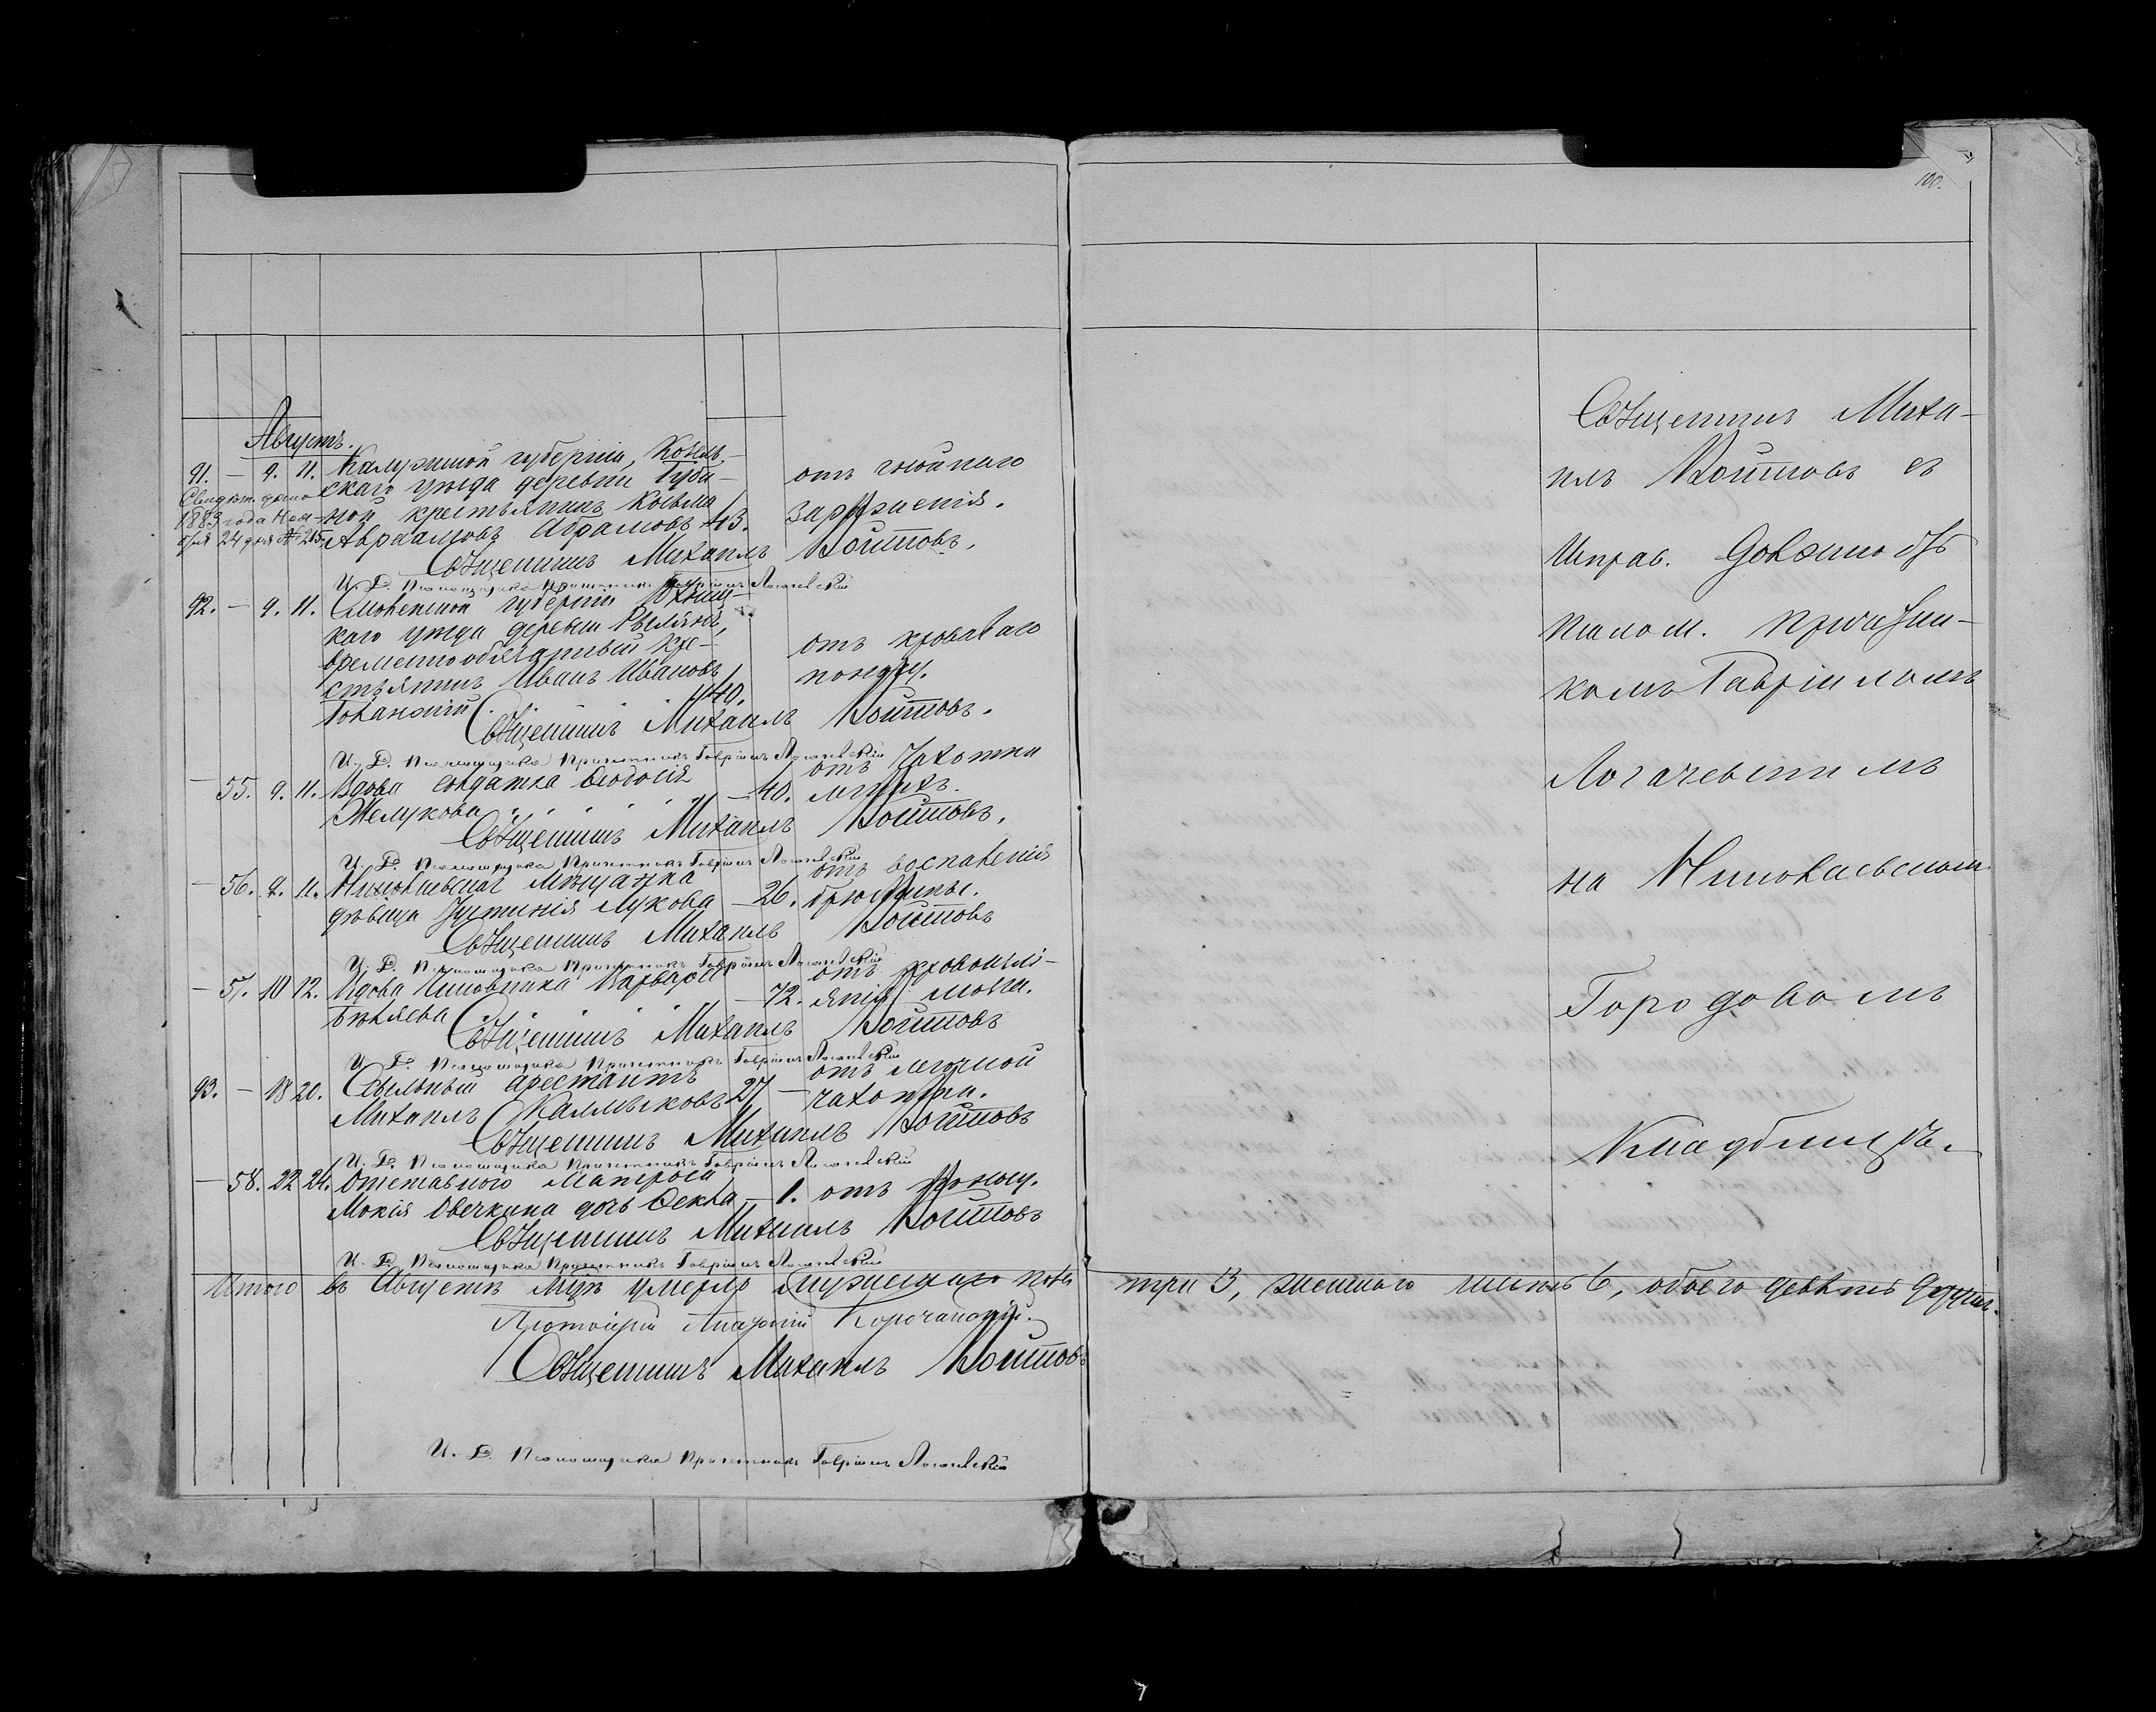 100.
Августъ.
91. — 9. 11. Калужской губерніи, Козель-
скаго уѣзда деревни Губи-
ной крестьянинъ Косьма
Авраамовъ Абрамовъ 43.
Свидѣт. дано
1883 года Ноя-
бря 24 дня № 215.
отъ гнойнаго
зараженія.
Священникъ Михаилъ Войтовъ.
И. Д. Псаломщика Причетникъ Гавріилъ Логачевскій
92. — 9. 11. Смоленской губерніи Юхнов-
каго уѣзда деревни
временнообязанный кре-
стьянинъ Иванъ Ивановъ
40.
отъ кроваваго
поносу.
Священникъ Михаилъ Войтовъ.
И. Д. Псаломщика Причетникъ Гавріилъ Логачевскій
— 55. 9. 11. Вдова солдатка Ѳеодосія
Желукова — 40.
отъ чахотки
легкихъ.
Священникъ Михаилъ Войтовъ.
И. Д. Псаломщика Причетникъ Гавріилъ Логачевскій
— 56. 9. 11. Николаевская мѣщанка
дѣвица Іустинія Лукова — 26.
отъ воспаленія
брюшины.
Священникъ Михаилъ Войтовъ
И. Д. Псаломщика Причетникъ Гавріилъ Логачевскій
— 57. 10 12. Вдова Чиновника Варвара
Бѣляева — 72.
отъ кровоизлі-
янія мозга.
Священникъ Михаилъ Войтовъ
И. Д. Псаломщика Причетникъ Гавріилъ Логачевскій
93. — 18 20. Ссыльный арестантъ
Михаилъ Калмыковъ 27 —
отъ легочной
чахотки.
Священникъ Михаилъ Войтовъ
И. Д. Псаломщика Причетникъ Гавріилъ Логачевскій
— 58. 22 24. Отставного матроса
Мокія Овечкина дочь Ѳекла — 1. отъ поносу.
Священникъ Михаилъ Войтовъ
И. Д. Псаломщика Причетникъ Гавріилъ Логачевскій
Итого въ Августѣ мцѣ умерло мужескаго пола
Протоіерей Корочанскій.
Священникъ Михаилъ Войтовъ
И. Д. Псаломщика Причетникъ Гавріилъ Логачевскій
Священникъ Миха-
илъ Войтовъ съ
Исправ. Должность
Псалом. причетни-
комъ Гавріиломъ
Логачевскимъ
на Николаевскомъ
Городовомъ
Кладбищѣ.
три 3, женскаго шесть 6, обоего девять 9 душъ.
7